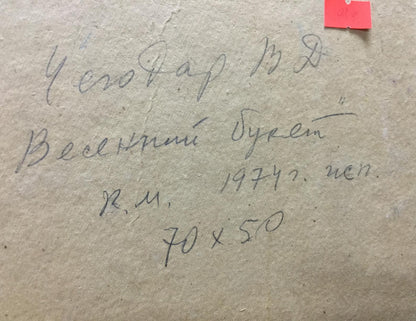 Чегодар В Д
Весенний букет"
к.м. 1974г. исп.
70 х 50